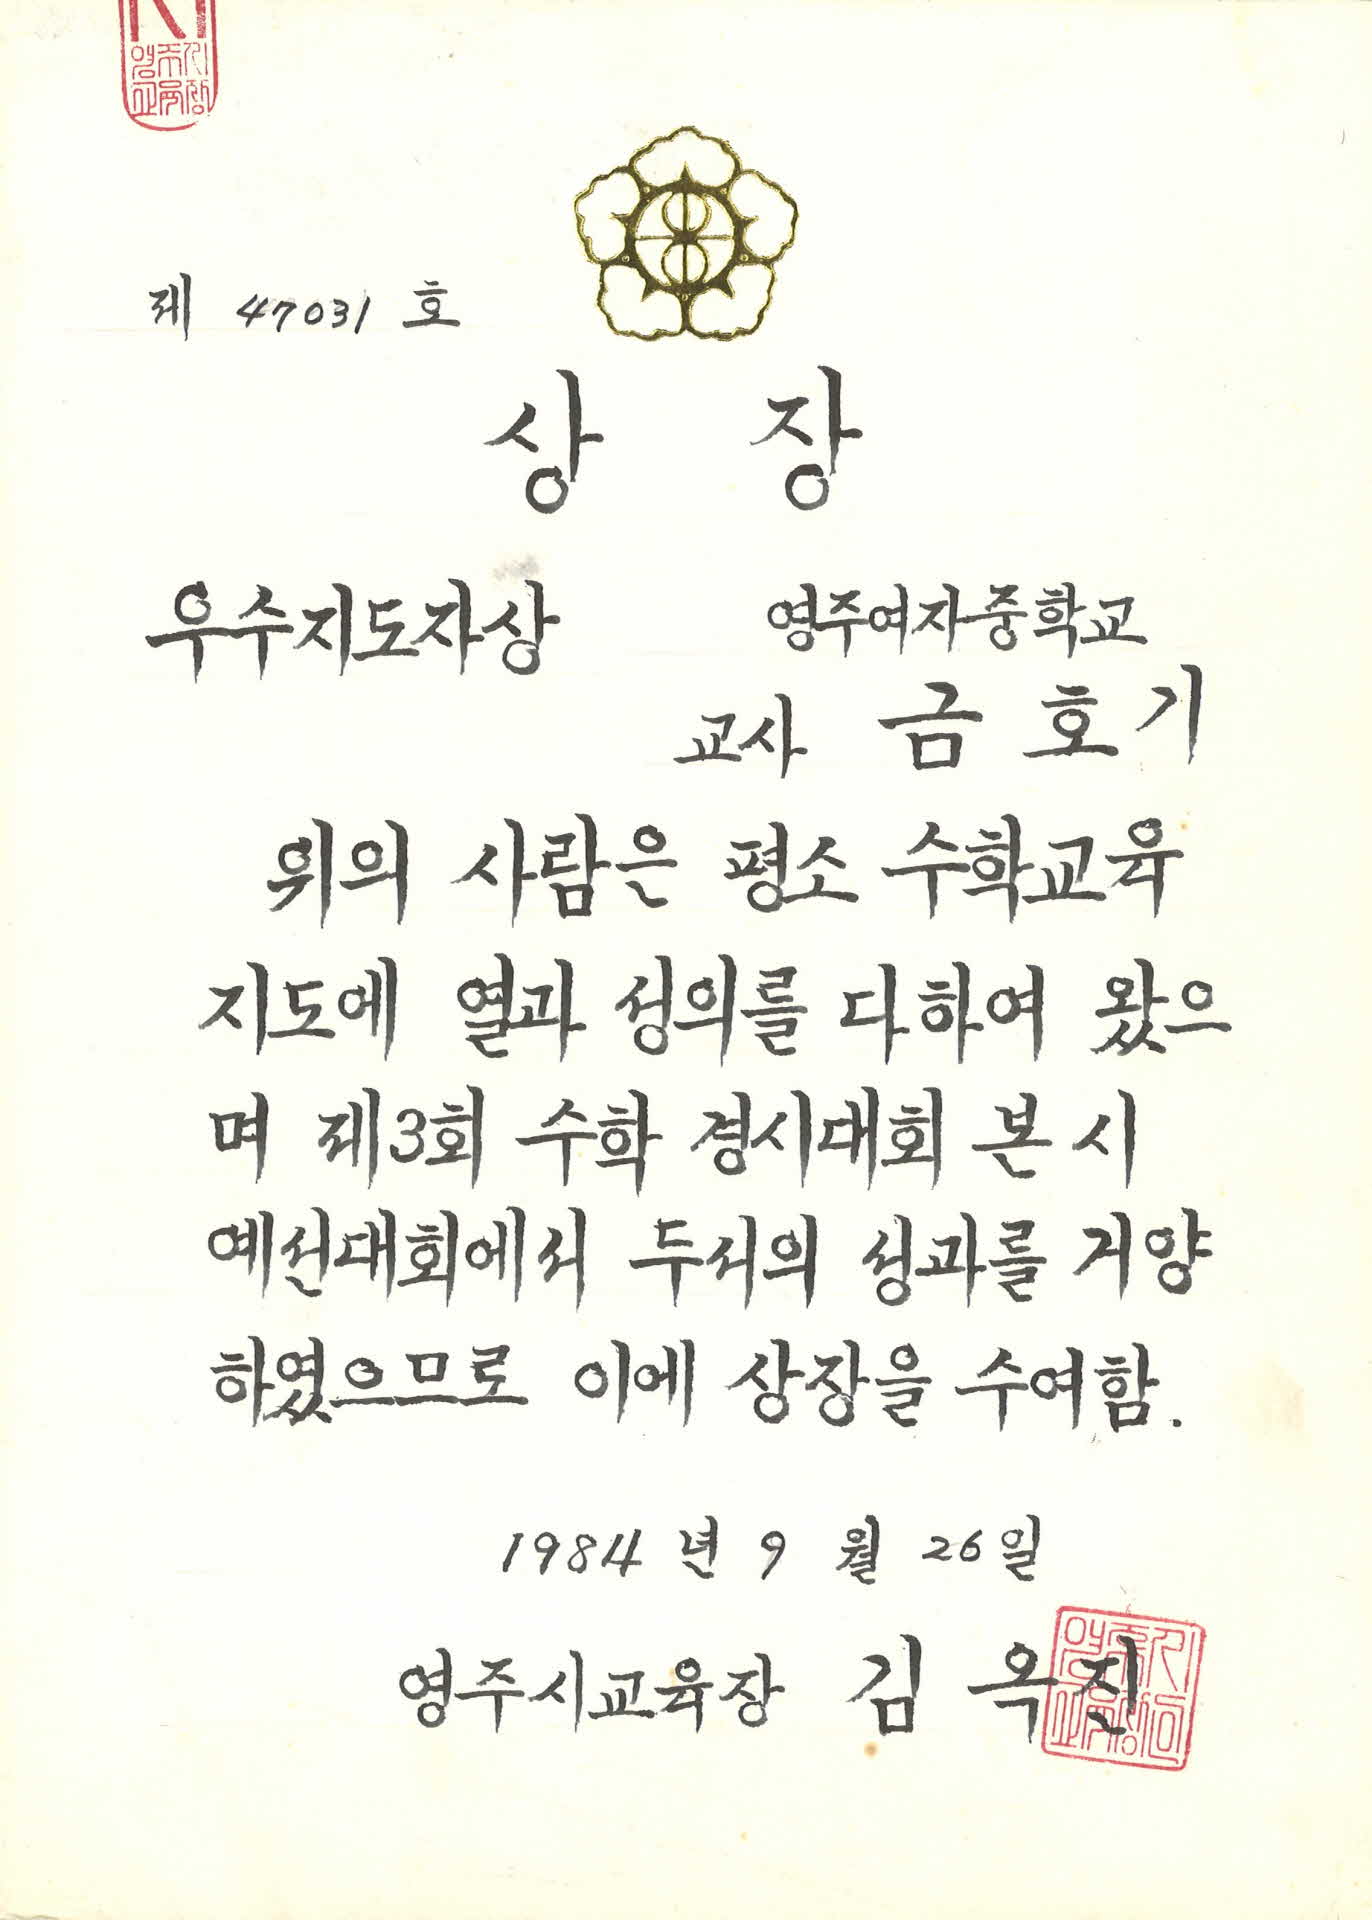 제 47031 호
상 장
우수지도자상
영주여자중학교
교사 금호기
위의 사람은 평소 수학교육
지도에 열과 성의를 다하여 왔으
며 제3회 수학 경시대회 본 시
예선대회에서 두서의 성과를 거양
하였으므로 이에 상장을 수여함.
1984 년 9 월 26 일
영주시교육장 김 옥진